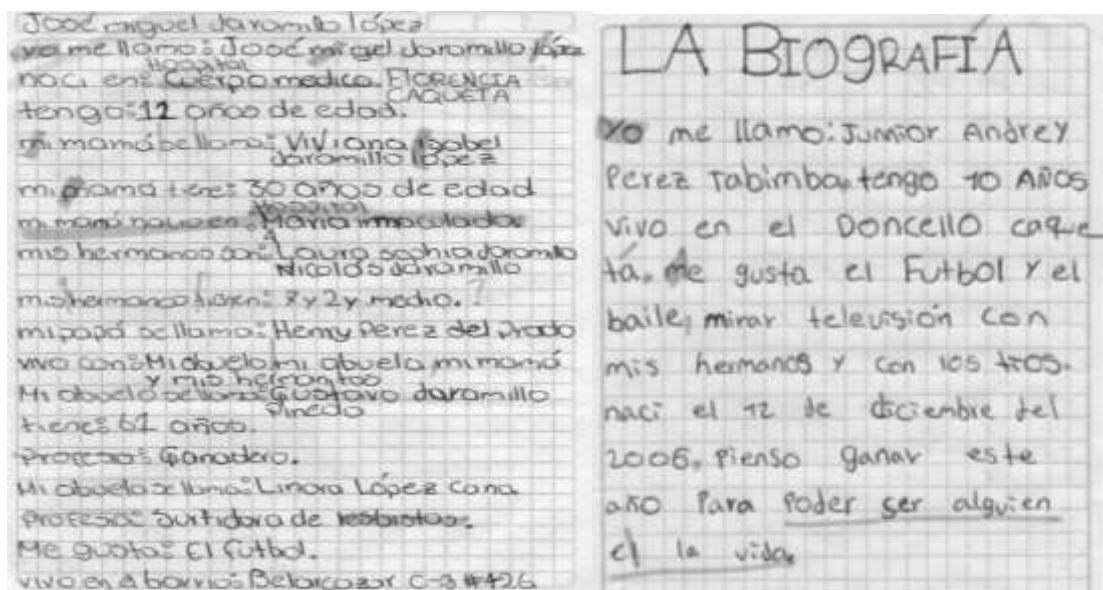 José miguel Jaramillo lópez
yo me llamo: José migel Jaramillo lópez
Hospital
naci en: Cuerpo medico. FlORENCIA
CAQUETA
tengo: 12 años de edad.
mi mamá se llama: Viviana Isabel
Jaramillo lópez
mi mamá tiene: 30 años de edad
Hospital
mi mamá nacio en: María inmaculada
mis hermanos son: Laura sophia Jaramillo
Nicolás Jaramillo
mis hermanos tienen: 8 y 2 y medio.
mi papá se llama: Henry Perez del Prado
vivo con: Mi abuelo mi abuela mi mamá
y mis hermanitos
Mi abuelo se llama: Gustavo Jaramillo
Pinedo
tiene: 61 años.
Profesion: Ganadero.
Mi abuela se llama: Linora López cana
Profesion: Surtidora de
Me gusta: El futbol.
vivo en el barrio: Belarcazar C-3 #426
LA BIOgRAFÍA
Yo me llamo: Junior Andrey
Perez Tabimba, tengo 10 AÑOS
vivo en el Doncello caque
tá. Me gusta el Futbol y el
baile, mirar televisión con
mis hermanos y con los tios.
naci el 12 de diciembre del
2006. Pienso ganar este
año Para Poder ser alguien
el la vida.